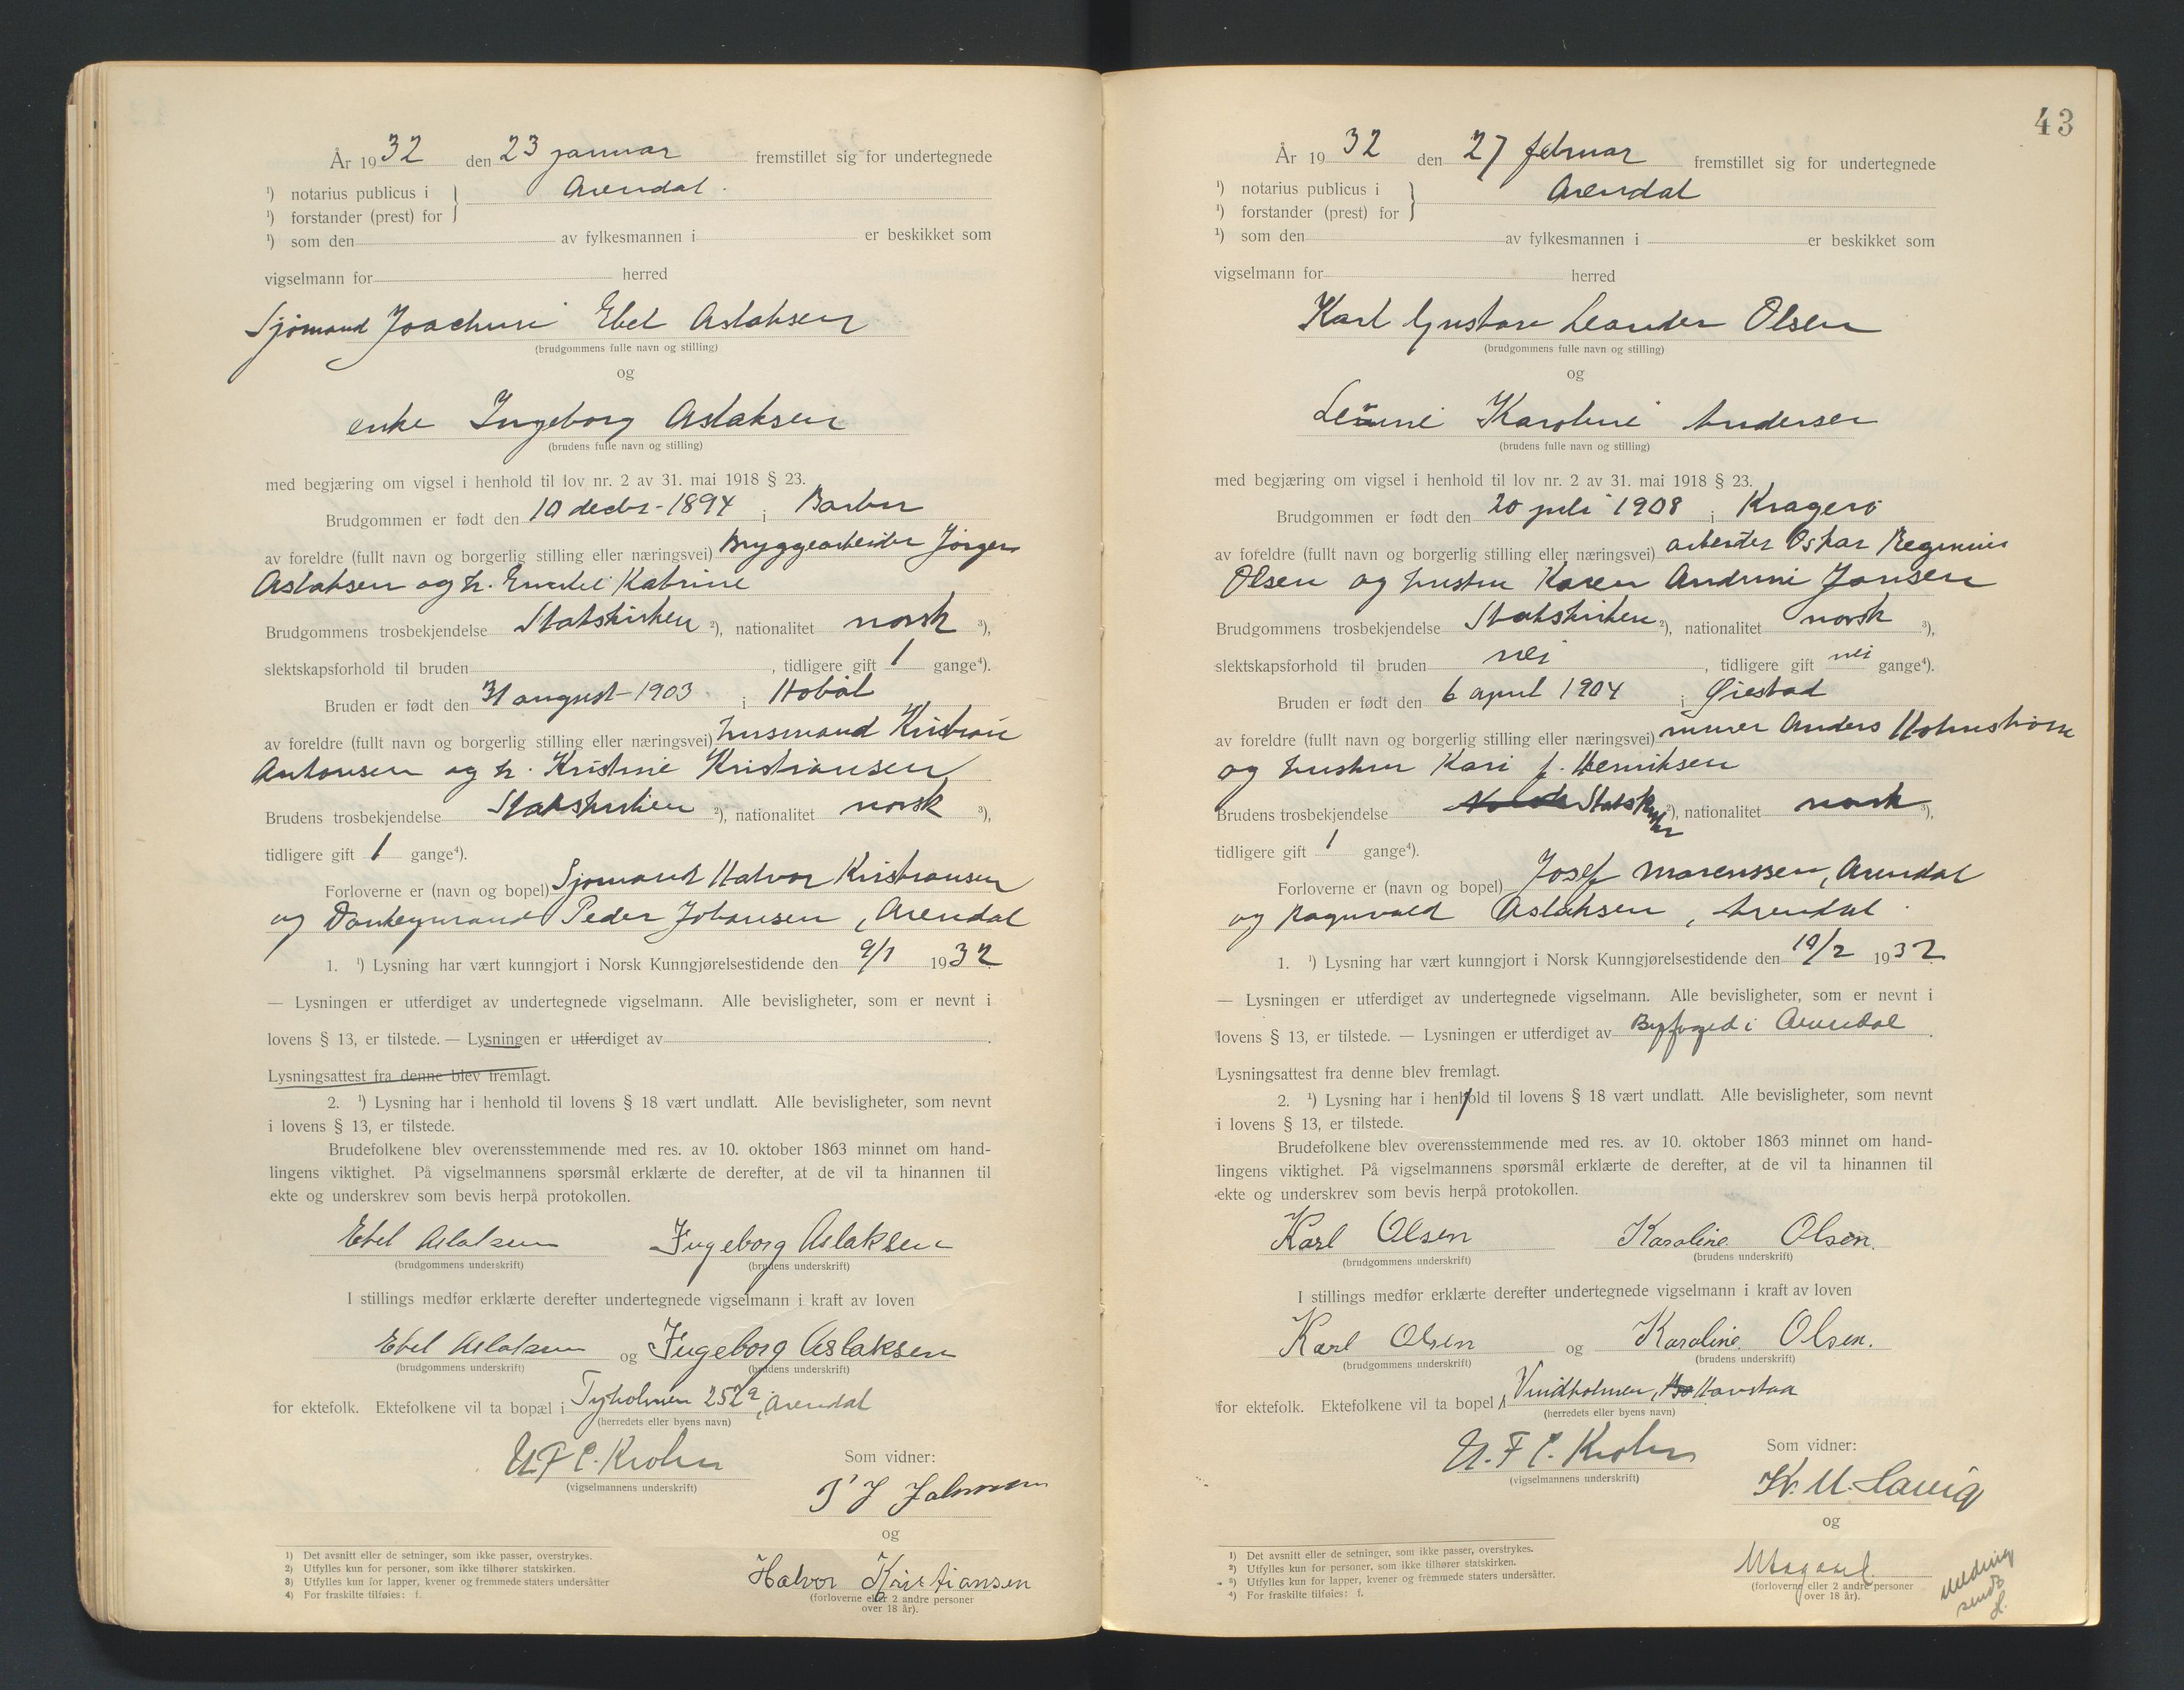 År 1932 den 23 januar fremstillet sig for undertegnede
¹) notarius publicus i } Arendal.
¹) forstander (prest) for
¹) som den av fylkesmannen i er beskikket som
vigselmann for herred
Sjömand Joachim Ebel Aslaksen
(brudgommens fulle navn og stilling)
og
enke Ingeborg Aslaksen
(brudens fulle navn og stilling)
med begjæring om vigsel i henhold til lov nr. 2 av 31. mai 1918 § 23.
Brudgommen er født den 10 decbr. 1894 i Barbu
av foreldre (fullt navn og borgerlig stilling eller næringsvei) Bryggearbeider Jörgen
Aslaksen og h. Katrine
Brudgommens trosbekjendelse Statskirken ²), nationalitet norsk ³),
slektskapsforhold til bruden , tidligere gift 1 gange⁴).
Bruden er født den 31 august 1903 i Hobøl
av foreldre (fullt navn og borgerlig stilling eller næringsvei) husmand Kristian
Antonsen og h. Kristine Kristiansen
Brudens trosbekjendelse Statskirken ²), nationalitet norsk ³),
tidligere gift 1 gange⁴).
Forloverne er (navn og bopel) Sjömand Halvor Kristiansen
og Donkeymand Peder Johansen, Arendal
1. ¹) Lysning har vært kunngjort i Norsk Kunngjørelsestidende den 9/1 1932
— Lysningen er utferdiget av undertegnede vigselmann. Alle bevisligheter, som er nevnt i
lovens § 13, er tilstede. — Lysningen er utferdiget av .
Lysningsattest fra denne blev fremlagt.
2. ¹) Lysning har i henhold til lovens § 18 vært undlatt. Alle bevisligheter, som nevnt
i lovens § 13, er tilstede.
Brudefolkene blev overensstemmende med res. av 10. oktober 1863 minnet om hand-
lingens viktighet. På vigselmannens spørsmål erklærte de derefter, at de vil ta hinannen til
ekte og underskrev som bevis herpå protokollen.
Ebel Aslaksen Ingeborg Aslaksen
(brudgommens underskrift) (brudens underskrift)
I stillings medfør erklærte derefter undertegnede vigselmann i kraft av loven
Ebel Aslaksen og Ingeborg Aslaksen
(brudgommens underskrift) (brudens underskrift)
for ektefolk. Ektefolkene vil ta bopæl i Tyholmen 252ª, Arendal
(herredets eller byens navn)
U. F. C. Krohn Som vidner:
(vigselmannens underskrift)
P J Johansen
og
Halvor Kristiansen
(forloverne eller 2 andre personer
over 18 år).
1) Det avsnitt eller de setninger, som ikke passer, overstrykes.
2) Utfylles kun for personer, som ikke tilhører statskirken.
3) Utfylles kun for lapper, kvener og fremmede staters undersåtter
4) For fraskilte tilføies: f.
43
År 1932 den 27 februar fremstillet sig for undertegnede
¹) notarius publicus i } Arendal
¹) forstander (prest) for
¹) som den av fylkesmannen i er beskikket som
vigselmann for herred
Karl Gustav Leander Olsen
(brudgommens fulle navn og stilling)
og
Karoline Andersen
(brudens fulle navn og stilling)
med begjæring om vigsel i henhold til lov nr. 2 av 31. mai 1918 § 23.
Brudgommen er født den 20 juli 1908 i Kragerö
av foreldre (fullt navn og borgerlig stilling eller næringsvei) arbeider Oskar
Olsen og hustru Karen Andrine Jansen
Brudgommens trosbekjendelse Statskirken ²), nationalitet norsk ³),
slektskapsforhold til bruden nei , tidligere gift nei gange⁴).
Bruden er født den 6 april 1904 i Øiestad
av foreldre (fullt navn og borgerlig stilling eller næringsvei) murer Anders Holmström
og hustru Kari f. Henriksen
Brudens trosbekjendelse Norsk Statskirken ²), nationalitet norsk ³),
tidligere gift 1 gange⁴).
Forloverne er (navn og bopel) Josef Marenssen, Arendal
og Ragnvald Aslaksen, Arendal.
1. ¹) Lysning har vært kunngjort i Norsk Kunngjørelsestidende den 10/2 1932
— Lysningen er utferdiget av undertegnede vigselmann. Alle bevisligheter, som er nevnt i
lovens § 13, er tilstede. — Lysningen er utferdiget av Byfoged i Arendal .
Lysningsattest fra denne blev fremlagt.
2. ¹) Lysning har i henhold til lovens § 18 vært undlatt. Alle bevisligheter, som nevnt
i lovens § 13, er tilstede.
Brudefolkene blev overensstemmende med res. av 10. oktober 1863 minnet om hand-
lingens viktighet. På vigselmannens spørsmål erklærte de derefter, at de vil ta hinannen til
ekte og underskrev som bevis herpå protokollen.
Karl Olsen Karoline Olsen.
(brudgommens underskrift) (brudens underskrift)
I stillings medfør erklærte derefter undertegnede vigselmann i kraft av loven
Karl Olsen og Karoline Olsen.
(brudgommens underskrift) (brudens underskrift)
for ektefolk. Ektefolkene vil ta bopel i Vindholmen, Havstad
(herredets eller byens navn)
U. F. C. Krohn Som vidner:
(vigselmannens underskrift)
Kr. M. Hauig
og
(forloverne eller 2 andre personer
over 18 år).
Melding
sendt
1) Det avsnitt eller de setninger, som ikke passer, overstrykes.
2) Utfylles kun for personer, som ikke tilhører statskirken.
3) Utfylles kun for lapper, kvener og fremmede staters undersåtter.
4) For fraskilte tilføies: f.